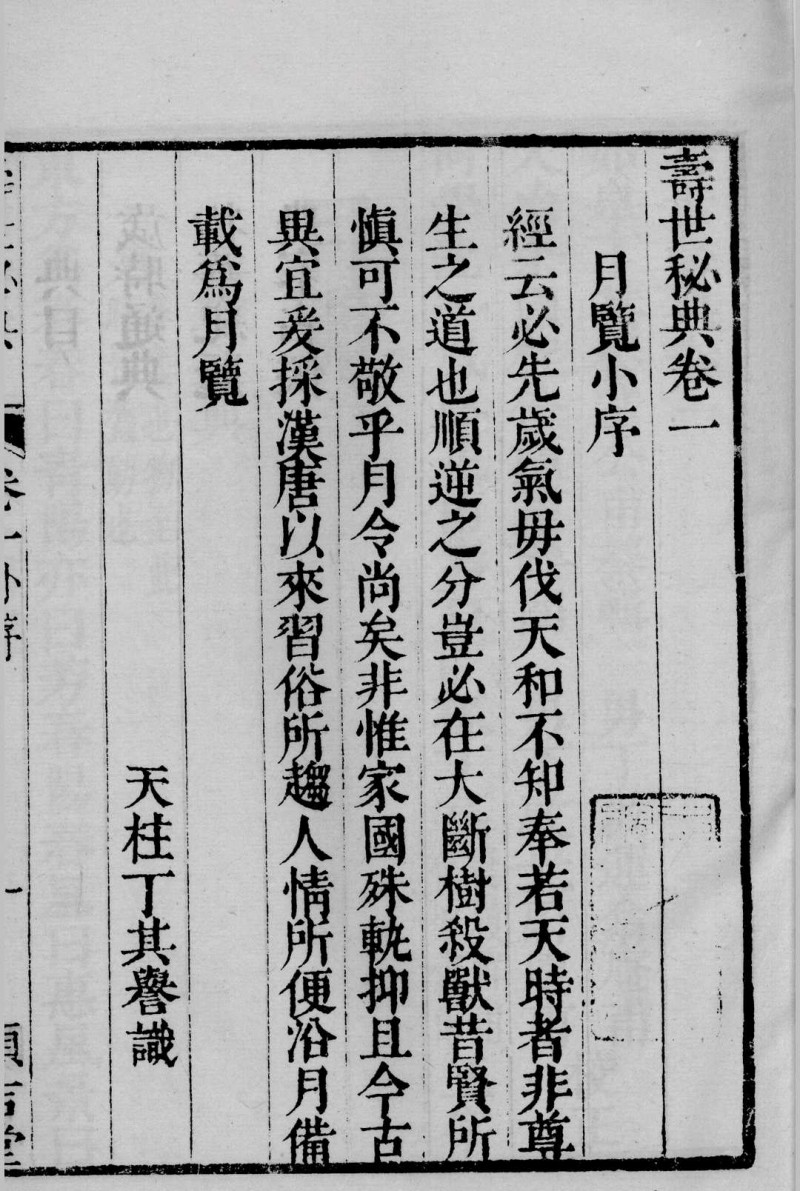 壽世秘典卷一
月覽小序
經云必先歲氣毋伐天和不知奉若天時者非尊
生之道也順逆之分豈必在大斷樹殺獸昔賢所
慎可不敬乎月令尚矣非惟家國殊軌抑且今古
異宜爰採漢唐以來習俗所趨人情所便沿月備
載爲月覽
天柱丁其譽識
卷一小序
一